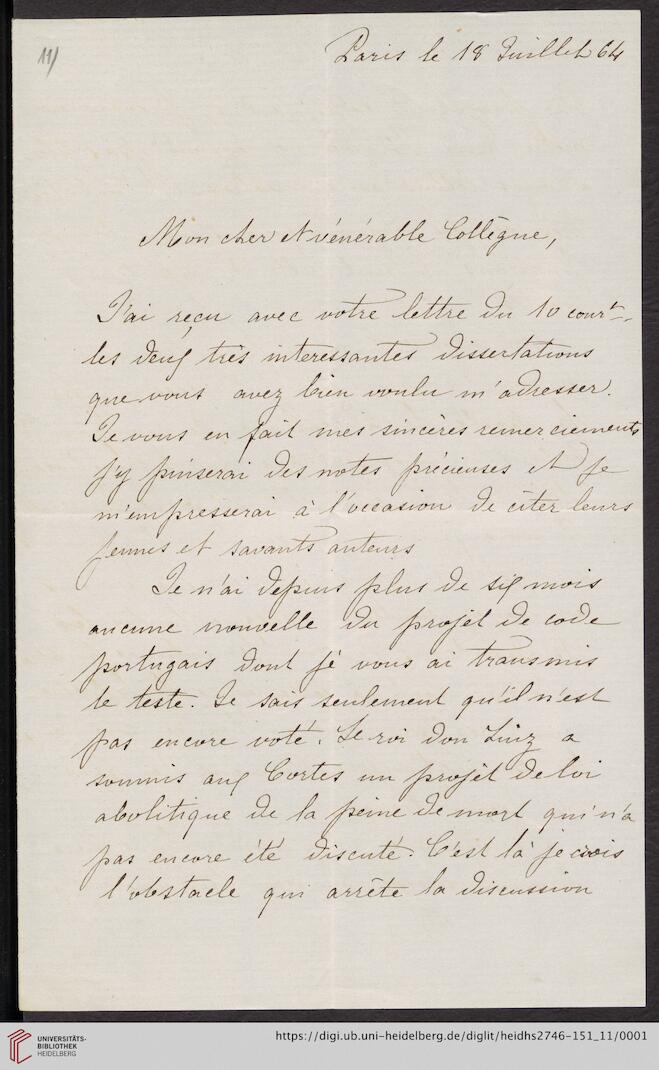 11)
Paris le 18 Juillet 64
Mon cher et vénérable Collègue,
J'ai reçu avec votre lettre du 10 cour.t
les deux très interessantes dissertations
que vous avez bien voulu m'adresser.
Je vous en fait mes sincères remerciements
j'y puiserai des notes précieuses et je
m'empresserai à l'occasion de citer leurs
jeunes et savants auteurs
Je n'ai depuis plus de six mois
aucune nouvelle du projet de code
portugais dont je vous ai transmis
le texte. Je sais seulement qu'il n'est
pas encore voté. Le roi don Luiz a
soumis aux Cortes un projet de loi
abolitique de la peine de mort qui n'a
pas encore été discuté. C'est là je crois
l'obstacle qui arrête la discussion
UNIVERSITÄTS-
BIBLIOTHEK
HEIDELBERG
https://digi.ub.uni-heidelberg.de/diglit/heidhs2746-151_11/0001